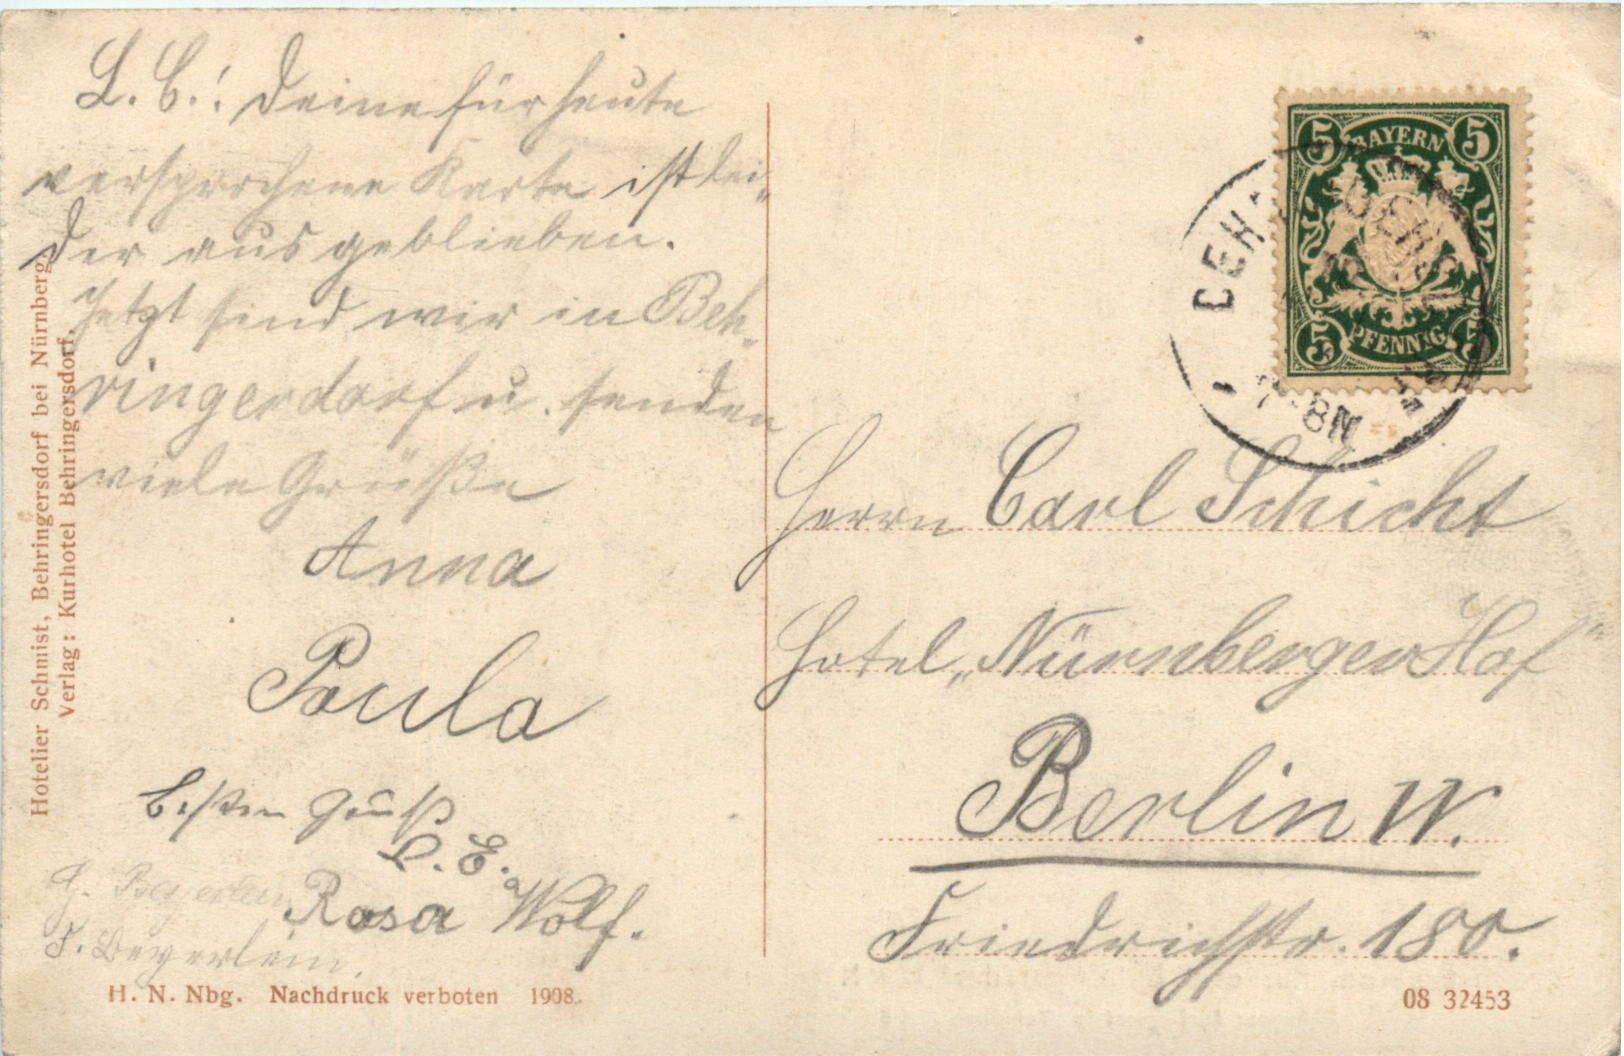 L. C.! Deine für heute
versprochene Karte ist lei-
der ausgeblieben.
Jetzt sind wir in Beh-
ringerdorf u. senden
viele Grüße
Anna
Paula
Besten Gruß
L. E.
Rosa Wolf.
G. Beyerlein
F. Beyerlein.
Hotelier Schmist, Behringersdorf bei Nürnberg.
Verlag: Kurhotel Behringersdorf.
H. N. Nbg. Nachdruck verboten 1908.
5 BAYERN 5
5 PFENNIG 5
8N
Herrn Carl Schicht
Hotel „Nürnberger Hof"
Berlin W.
Friedrichstr. 180.
08 32453